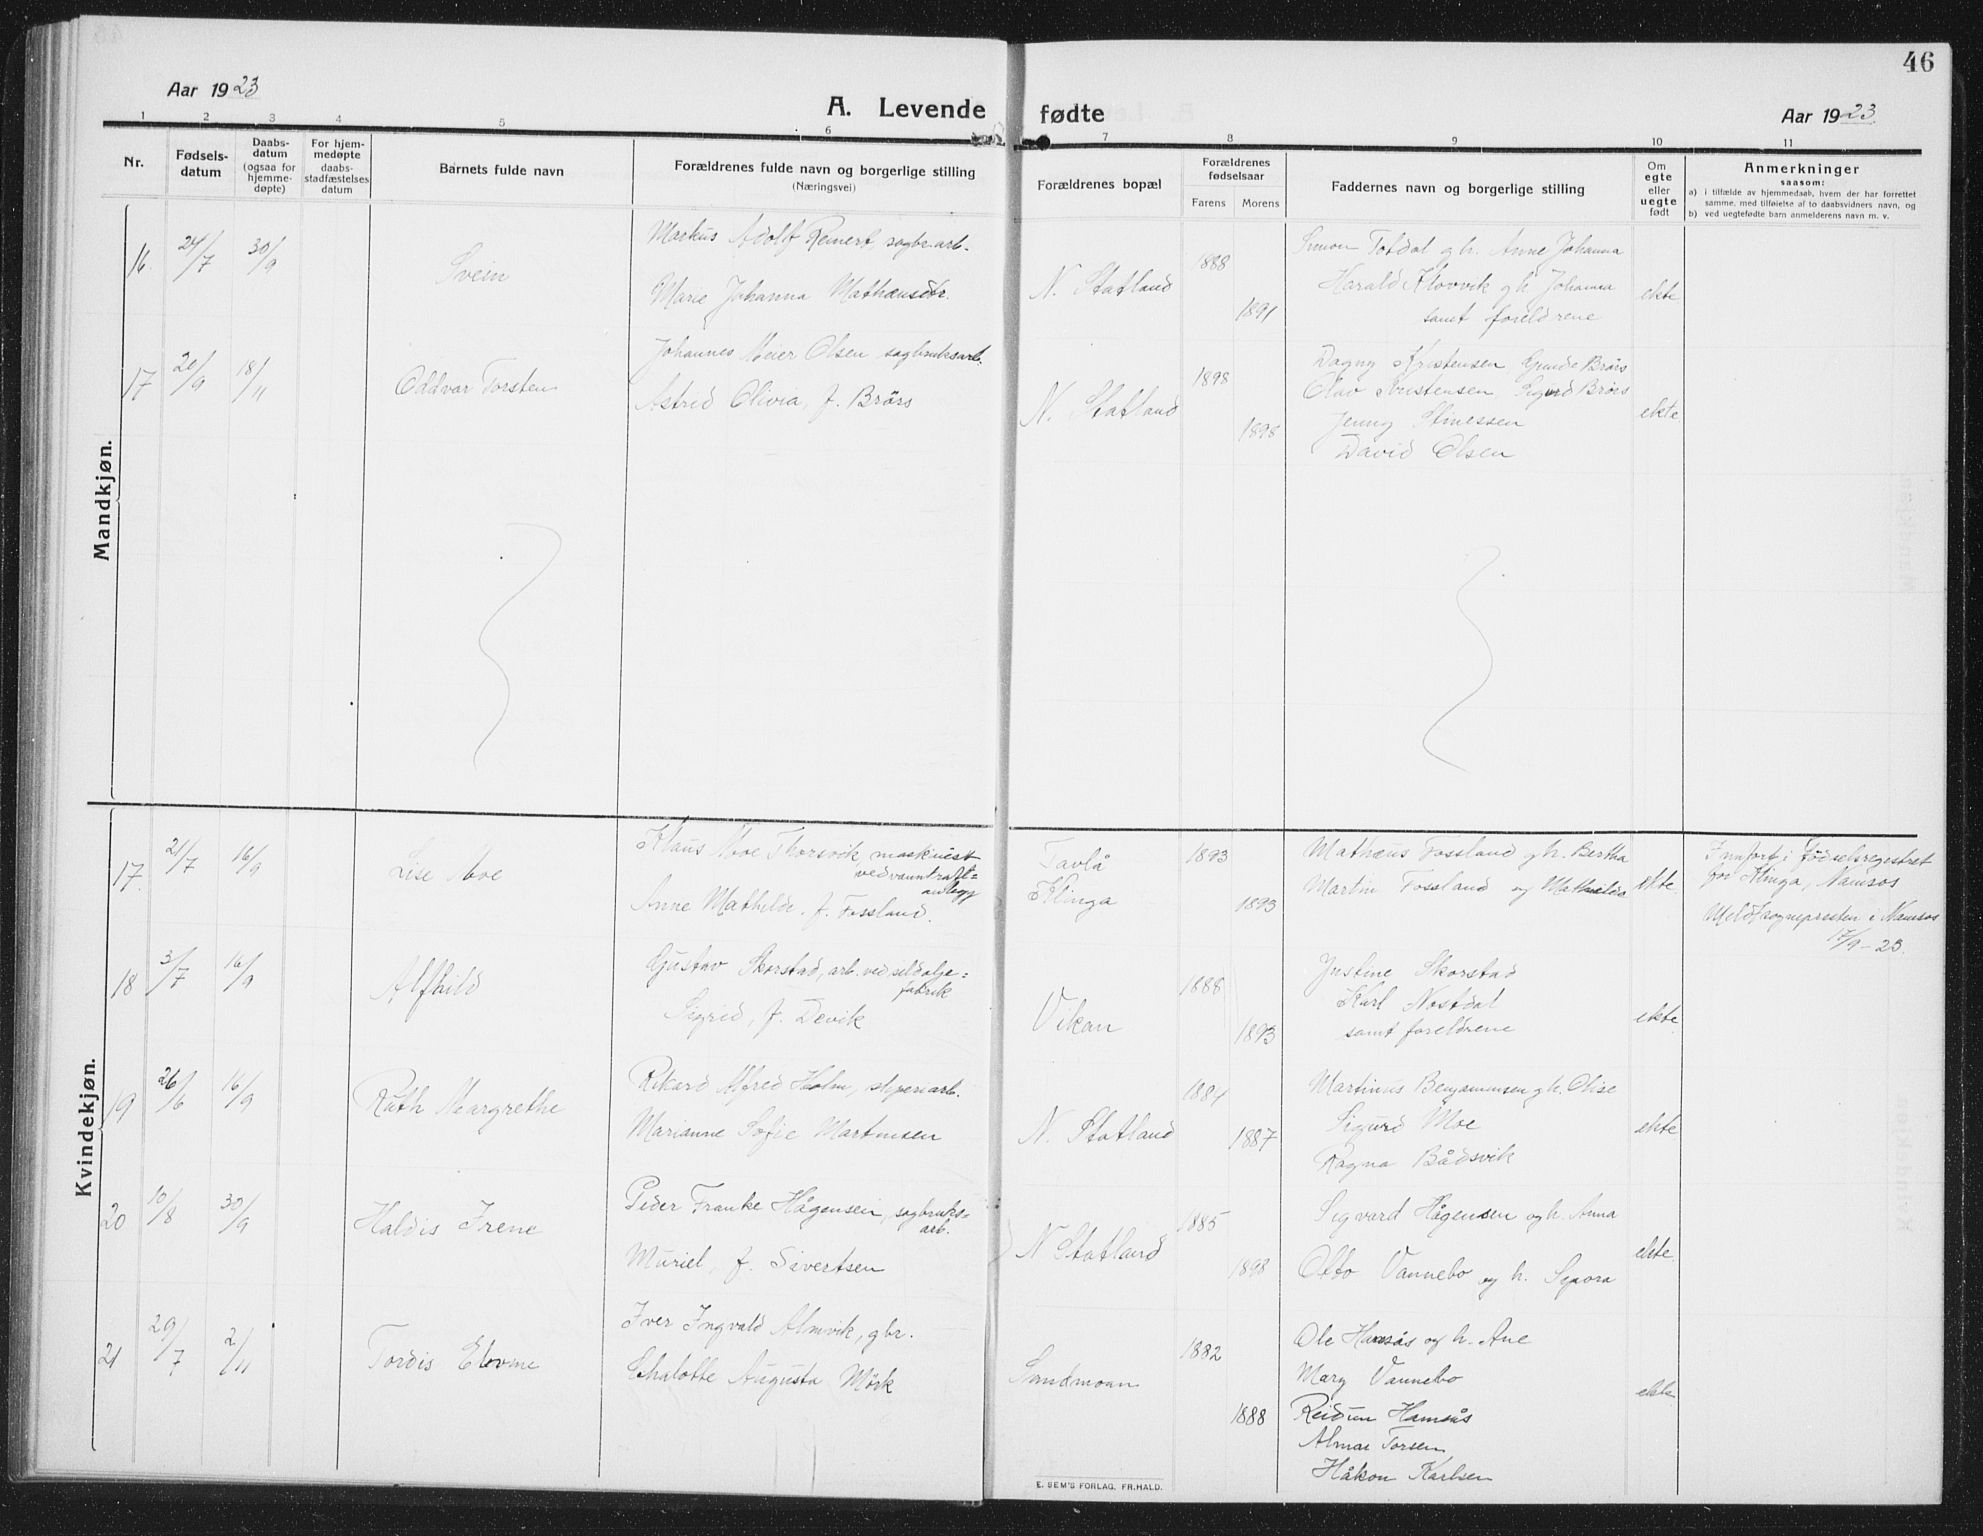 46
Aar 1923
A. Levende fødte
Aar 1923
1 2 3 4 5 6 7 8 9 10 11
Nr.
Fødsels-
datum
Daabs-
datum
(ogsaa for
hjemme-
døpte)
For hjem-
medøpte
daabs-
stadfæstelses
datum
Barnets fulde navn
Forældrenes fulde navn og borgerlige stilling
(Næringsvei)
Forældrenes bopæl
Forældrenes
fødselsaar
Farens Morens
Faddernes navn og borgerlige stilling
Om
egte
eller
uegte
født
Anmerkninger
saasom:
a) i tilfælde av hjemmedaab, hvem der har forrettet
samme, med tilføielse af to daabsvidners navn, og
b) ved uegtefødte barn anmelderens navn m. v.
Mandkjøn.
16. 24/7 30/9
Svein
Markus Adolf Reinert, sagbr.arb.
Marie Johanna Mathæusdtr.
N. Statland
1888
1891
Simon Totdal og h. Anne Johanna
Harald Klovvik og h. Johanna
samt foreldrene
ekte
17 20/9 18/11
Oddvar Torsten
Johannes Meier Olsen sagbruksarb.
Astrid Olivia, f. Brørs
N. Statland
1898
1898
Dagny Kristensen, Gunde Brørs
Olav Kristensen, Sigurd Brørs
Jenny Stinessen
David Olsen
ekte
Kvindekjøn.
17. 21/7 16/9
Lise Moe
Klaus Moe Thorsvik, maskinist
ved vannkraft-
anlegg
Anne Mathilde, f. Fossland.
Tavlå
Klinga
1893
1893
Mathæus Fossland og h. Bertha
Martin Fossland og Mathilde
ekte
Innført i fødselsregistret
for Klinga, Namsos
Meldt sognepresten i Namsos
17/9-23.
18 3/7 16/9
Alfhild
Gustav Skorstad, arb. ved sildolje=
fabrik
Sigrid, f. Devik
Vikan
1888
1893
Justine Skorstad
Karl Nostdal
samt foreldrene
ekte
19 26/6 16/9
Ruth Margrethe
Rikard Alfred Holm, sliperiarb.
Marianne Sofie Martinsen
N. Statland
1884
1887
Martinus Benjaminsen og h. Olise
Sigurd Moe
Ragna Bådsvik
ekte
20 10/8 30/9
Haldis Irene
Peder Franke Hågensen, sagbruks=
arb.
Muriel, f. Sivertsen
N Statland
1885
1898
Sigvard Hågensen og h. Anna
Otto Vannebo og h. Sipora
ekte
21 29/7 2/11
Tordis Elovine
Iver Ingvald Almvik, gbr.
Chalotte Augusta Mörk
Sandmoan
1882
1888
Ole Hamsås og h. Ane
Mary Vannebo
Reidun Hamsås
Almar Torsen
Håkon Karlsen
ekte
E. SEM'S FORLAG, FR.HALD.